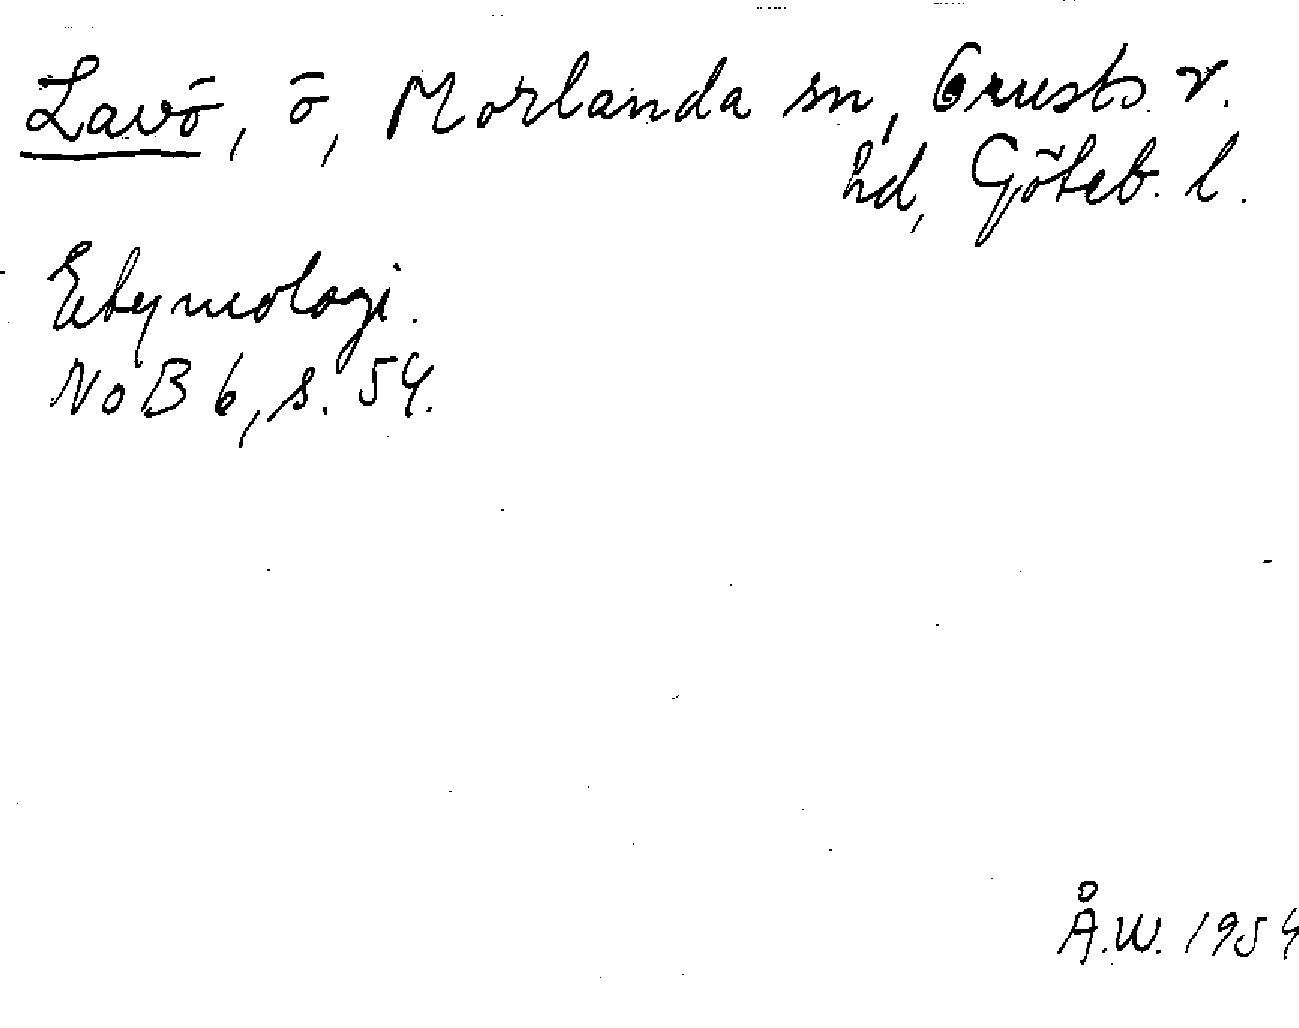 Lavö, ö, Morlanda sn, Orusts v.
hd, Göteb. l.
Etymologi.
NoB 6, s. 54.
Å.W. 1954